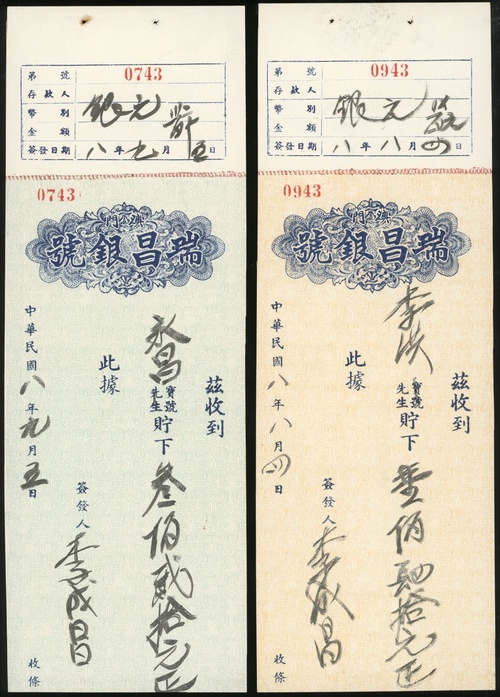 第 號 0743
存款人
幣別 銀元
金額
簽發日期 八年九月五日
0743
澳門
瑞昌銀號
茲收到
永昌 寶號先生 貯下 叁佰貳拾元正
此據
簽發人 李成昌
中華民國八年九月五日
收條
第 號 0943
存款人
幣別 銀元
金額
簽發日期 八年八月四日
0943
澳門
瑞昌銀號
茲收到
李洪 寶號先生 貯下 壹佰肆拾元正
此據
簽發人 李成昌
中華民國八年八月四日
收條